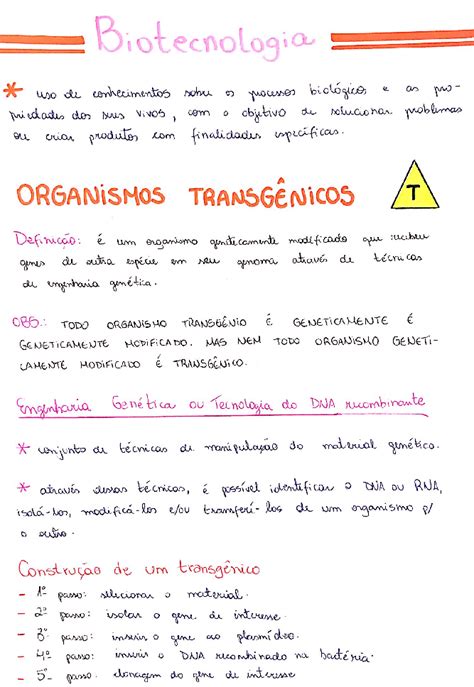 Biotecnologia
* uso de conhecimentos sobre os processos biológicos e as pro-
priedades dos seres vivos, com o objetivo de solucionar problemas
ou criar produtos com finalidades específicas.
ORGANISMOS TRANSGÊNICOS
T
Definição: é um organismo geneticamente modificado que recebeu
genes de outra espécie em seu genoma através de técnicas
de engenharia genética.
OBS.: TODO ORGANISMO TRANSGÊNIO É GENETICAMENTE É
GENETICAMENTE MODIFICADO. MAS NEM TODO ORGANISMO GENETI-
CAMENTE MODIFICADO É TRANSGÊNICO.
Engenharia Genética ou Tecnologia do DNA recombinante
* conjunto de técnicas de manipulação do material genético.
* através dessas técnicas, é possível identificar o DNA ou RNA,
isolá-los, modificá-los e/ou transferí-los de um organismo p/
o outro.
Construção de um transgênico
- 1º passo: selecionar o material.
- 2º passo: isolar o gene de interesse.
- 3º passo: inserir o gene ao plasmídeo.
- 4º passo: inserir o DNA recombinado na bactéria.
- 5º passo: clonagem do gene de interesse